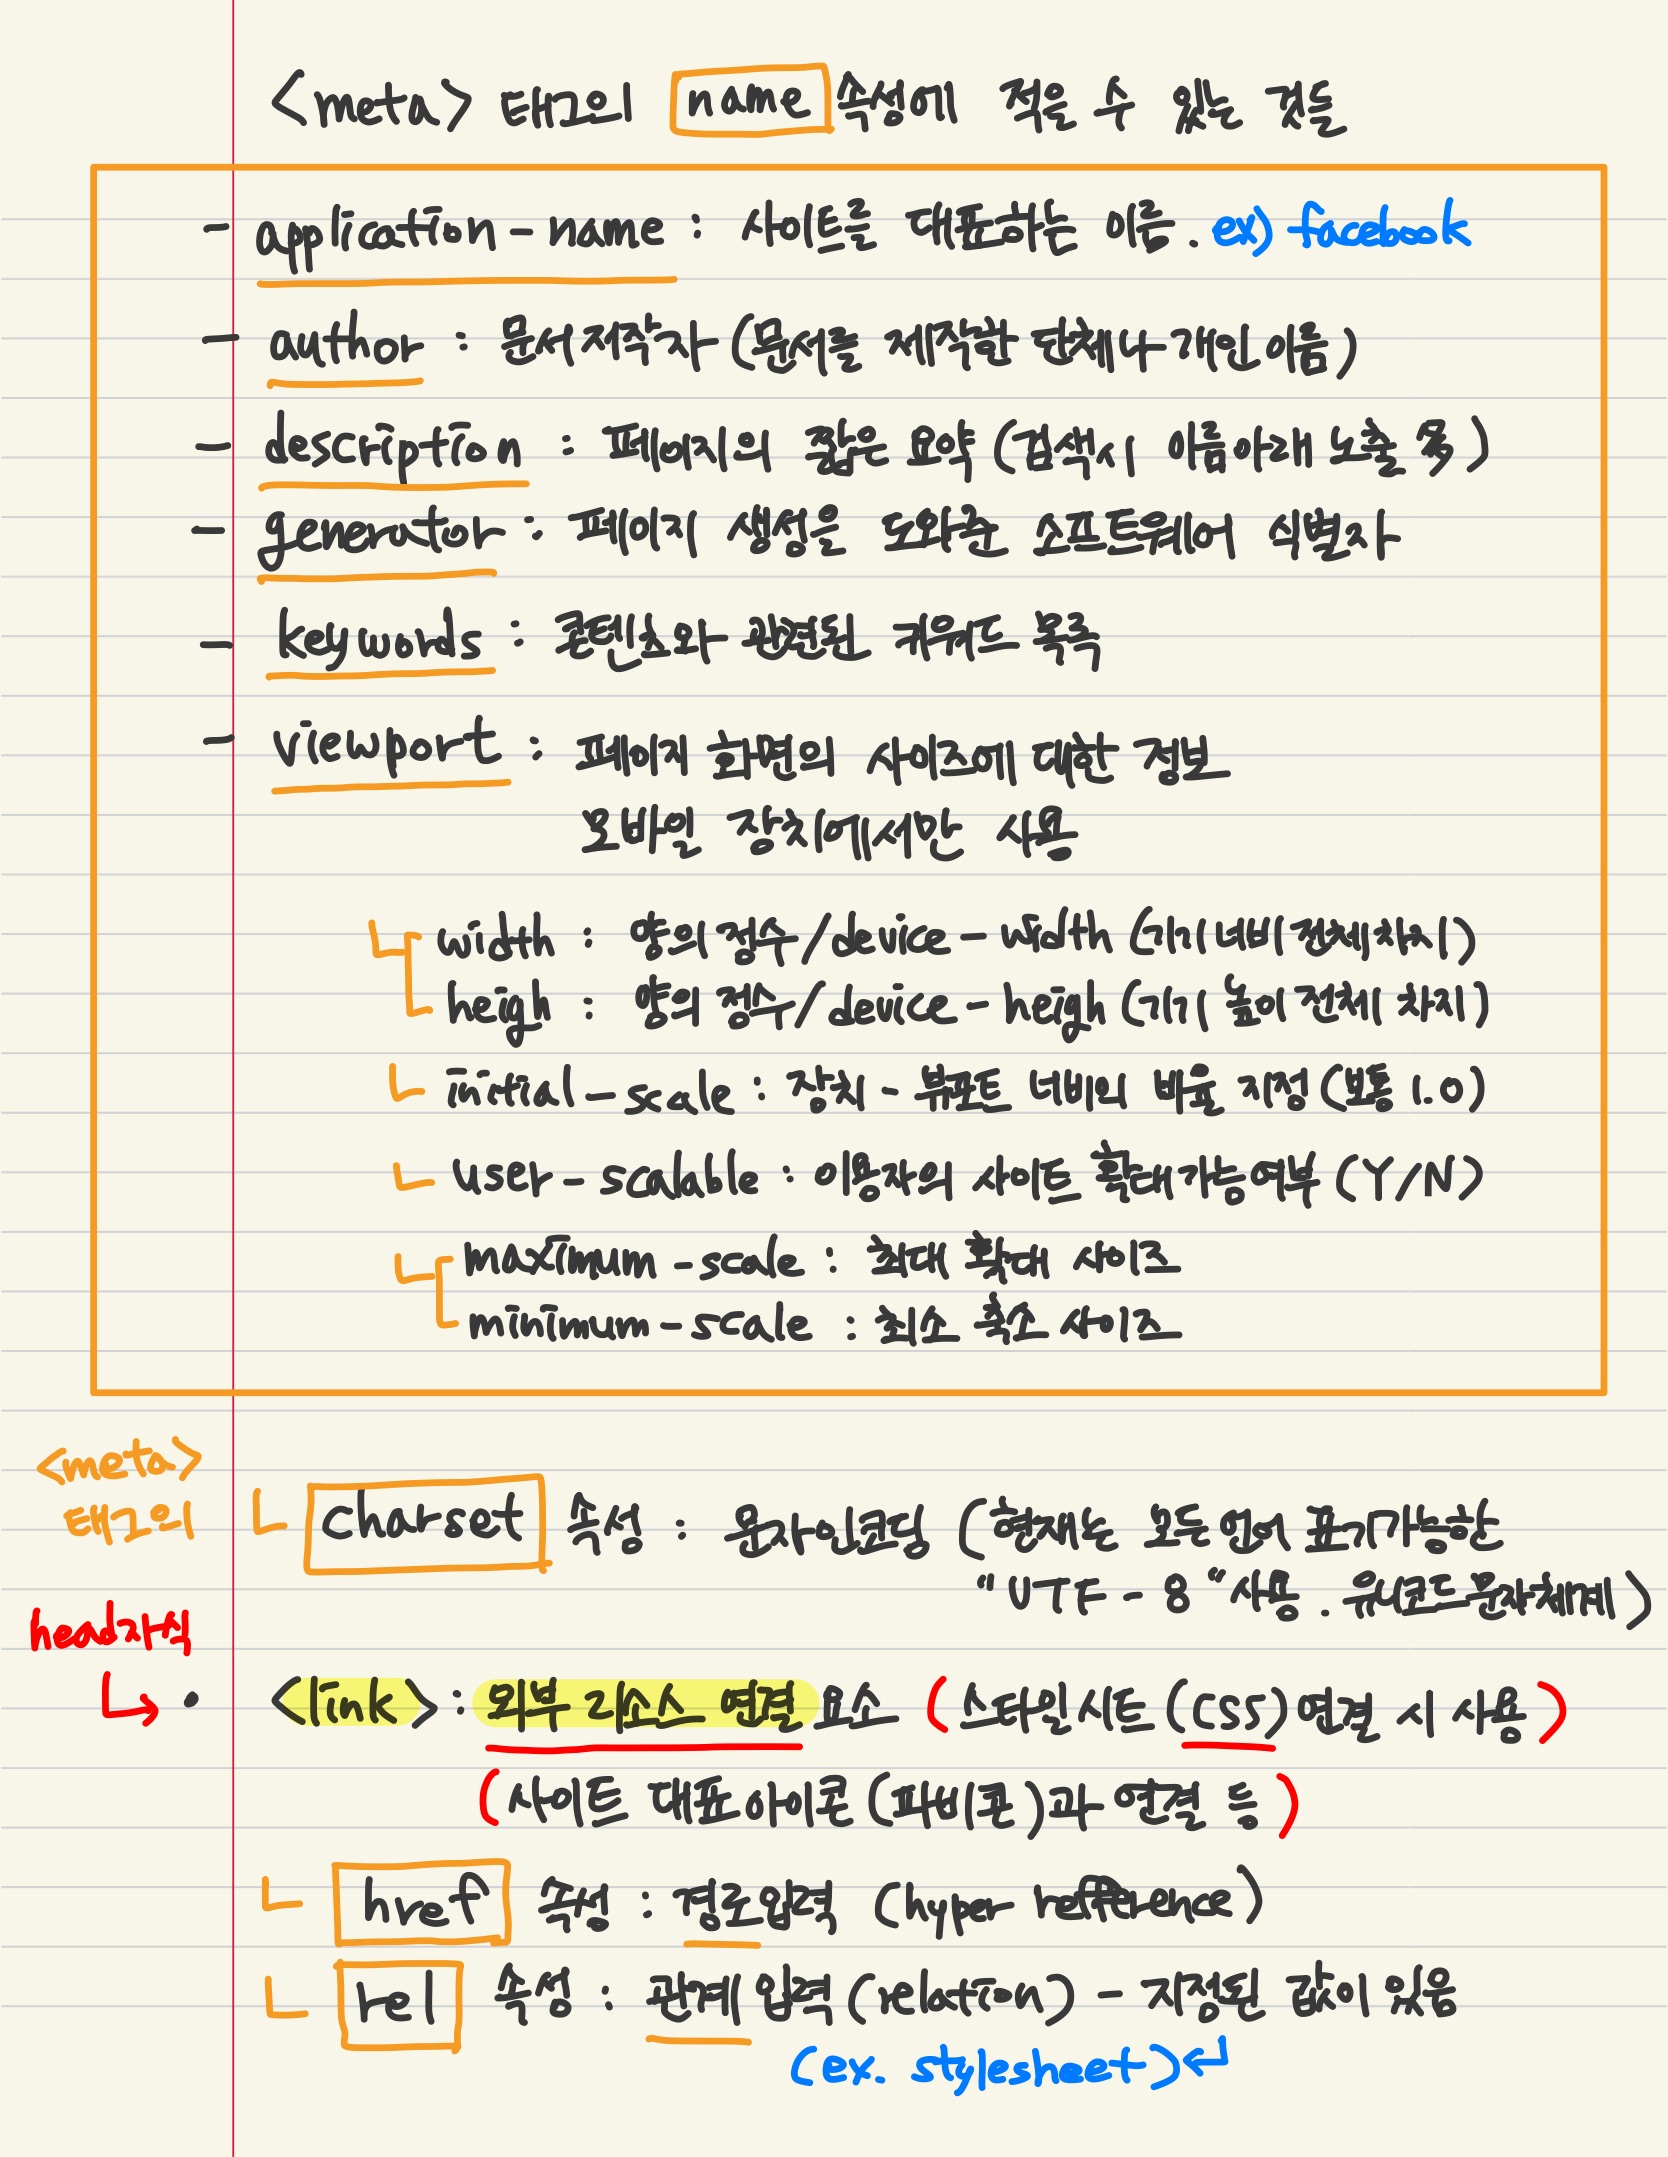 <meta> 태그의 name 속성에 적을 수 있는 것들
- application-name : 사이트를 대표하는 이름. ex) facebook
- author : 문서저작자 (문서를 제작한 단체나 개인이름)
- description : 페이지의 짧은 요약 (검색시 이름아래 노출 多)
- generator : 페이지 생성을 도와준 소프트웨어 식별자
- keywords : 콘텐츠와 관련된 키워드 목록
- viewport : 페이지 화면의 사이즈에 대한 정보
모바일 장치에서만 사용
width : 양의정수/device-width (기기너비전체차지)
heigh : 양의정수/device-heigh (기기 높이 전체 차지)
initial-scale : 장치-뷰포트 너비의 비율 지정 (보통 1.0)
user-scalable : 이용자의 사이트 확대가능여부 (Y/N)
maximum-scale : 최대 확대 사이즈
minimum-scale : 최소 축소 사이즈
<meta>
태그의 charset 속성 : 문자인코딩 (현재는 모든언어 표기가능한
"UTF-8" 사용. 유니코드문자체계)
head자식
• <link> : 외부 리소스 연결 요소 (스타일시트 (CSS) 연결 시 사용)
(사이트 대표아이콘 (파비콘)과 연결 등)
href 속성 : 경로입력 (hyper refference)
rel 속성 : 관계입력 (relation) - 지정된 값이 있음
(ex. stylesheet)